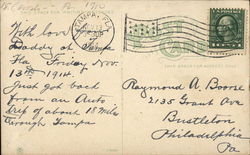 TAMPA, FLA.
With love
Daddy at Tampa
Fla Friday Nov.
13th 1914.
Just got back
from an Auto
trip of about 18 Miles
through Tampa
Raymond A. Boone
2135 Grant Ave
Bustleton
Philadelphia
Pa